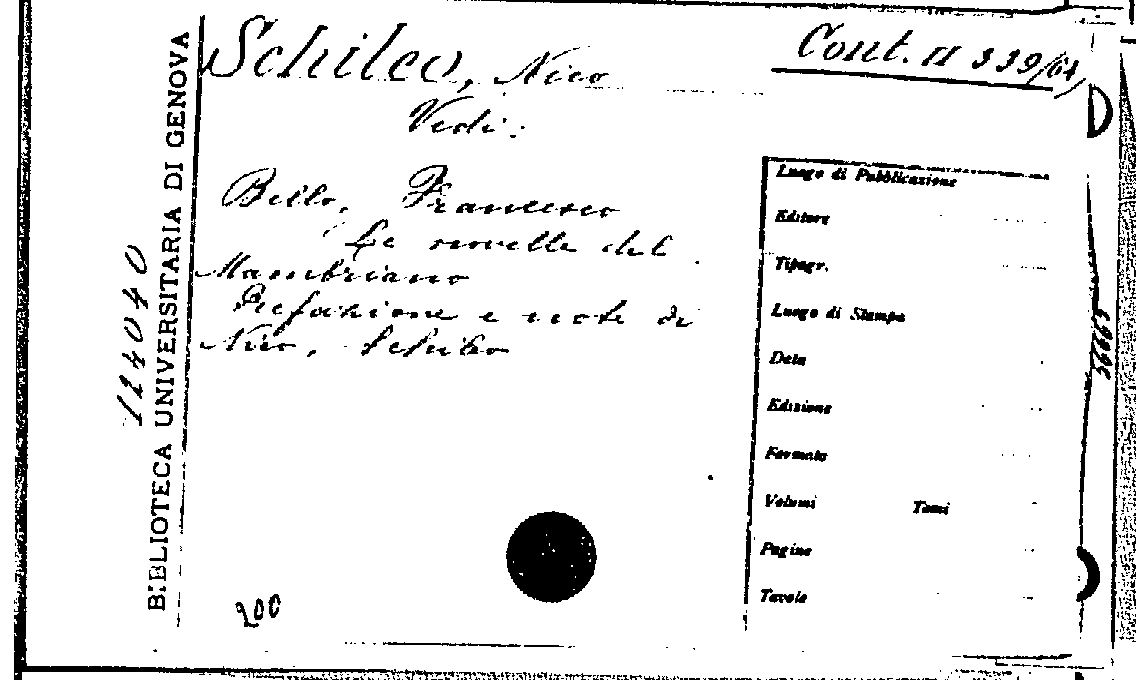 Schileo, Nico
Cont. II 339/64
Vedi:
Bello, Francesco
Le novelle del
Mambriano
Prefazione e note di
Nico, Schileo
BIBLIOTECA UNIVERSITARIA DI GENOVA
124040
200
Luogo di Pubblicazione
Editore
Tipogr.
Luogo di Stampa
Data
Edizione
Formato
Volumi Tomi
Pagine
Tavole